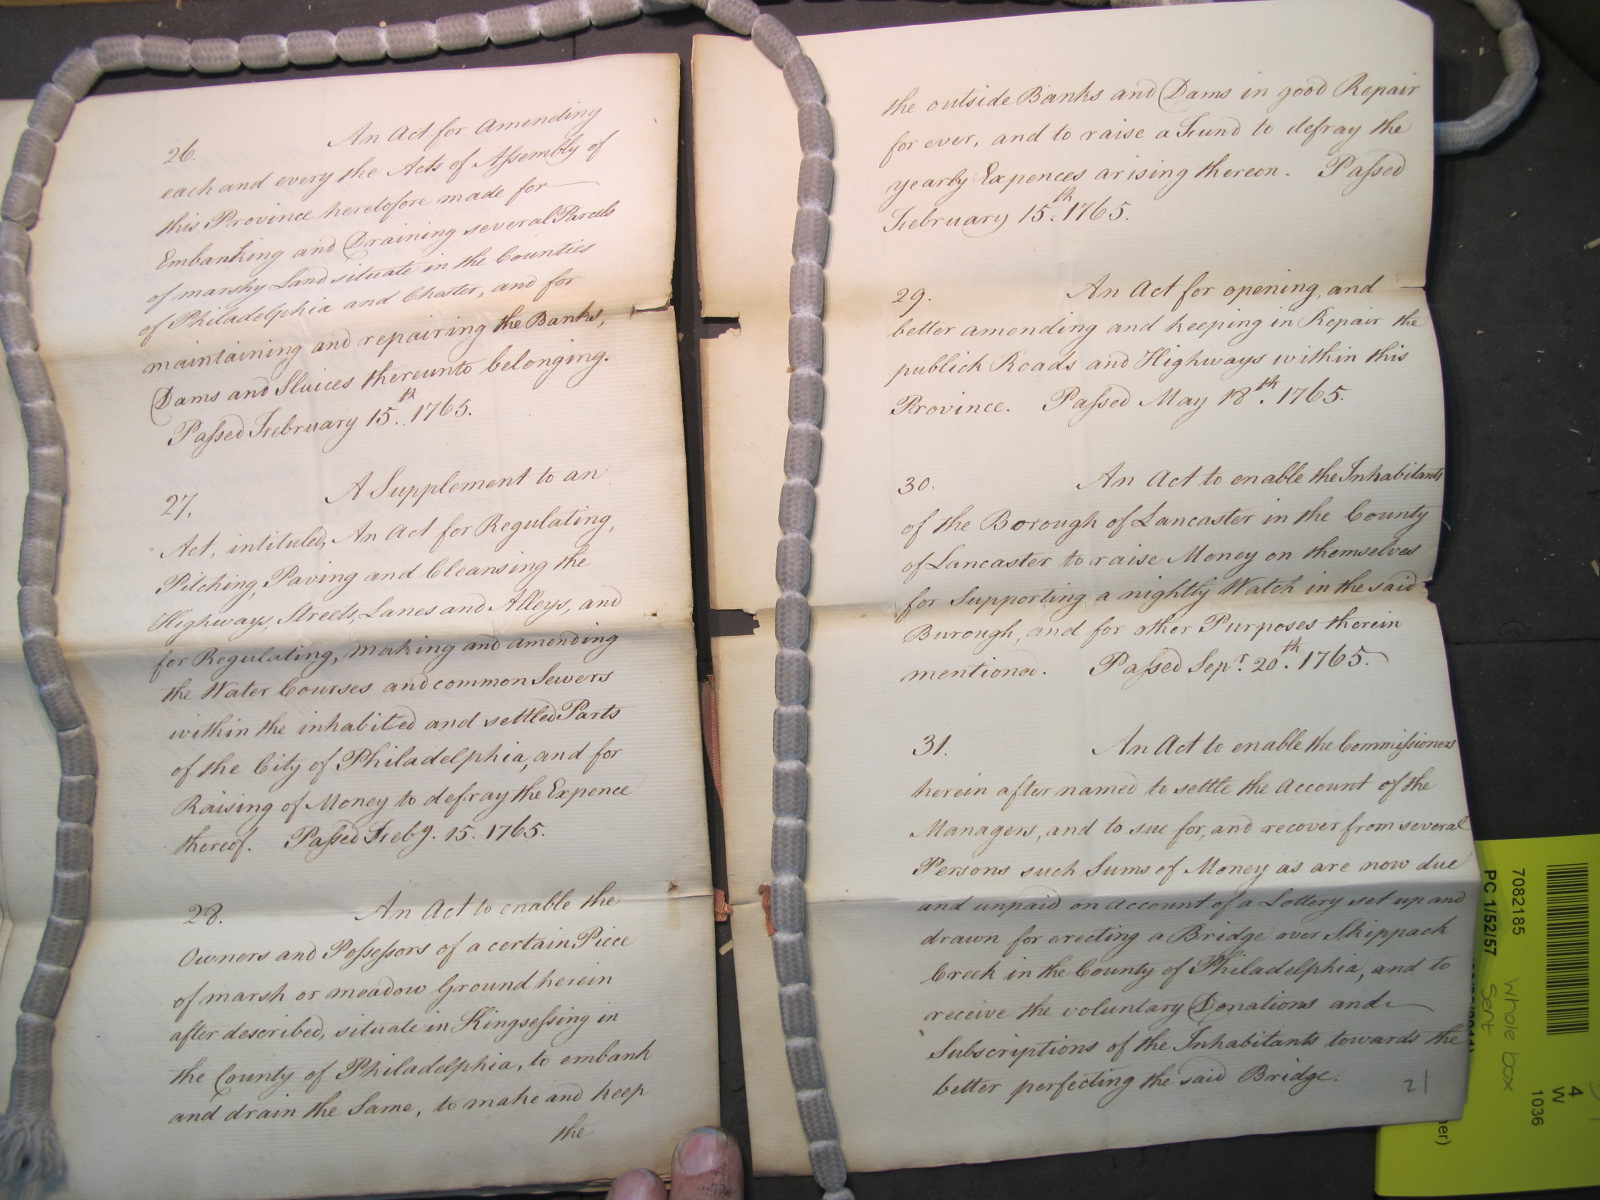 26. An Act for Amending
each and every the Acts of Assembly of
this Province heretofore made for
Embanking and Draining several Parcels
of marshy Land situate in the Counties
of Philadelphia and Chester, and for
maintaining and repairing the Banks,
Dams and Sluices thereunto belonging.
Passed February 15.th 1765.
27. A Supplement to an
Act, intituled, An Act for Regulating,
Pitching, Paving and Cleansing the
Highways, Streets, Lanes and Alleys, and
for Regulating, making and amending
the Water Courses and common Sewers
within the inhabited and settled Parts
of the City of Philadelphia, and for
Raising of Money to defray the Expence
thereof. Passed Feby. 15. 1765.
28. An Act to enable the
Owners and Possessors of a certain Piece
of marsh or meadow Ground herein
after described, situate in Kingsessing in
the County of Philadelphia, to embank
and drain the Same, to make and keep
the
the outside Banks and Dams in good Repair
for ever, and to raise a Fund to defray the
yearly Expences arising thereon. Passed
February 15.th 1765.
29. An Act for opening, and
better amending and keeping in Repair the
publick Roads and Highways within this
Province. Passed May 18th. 1765.
30. An Act to enable the Inhabitants
of the Borough of Lancaster in the County
of Lancaster to raise Money on themselves
for Supporting a nightly Watch in the said
Burough, and for other Purposes therein
mentioned. Passed Sepr. 20th. 1765.
31. An Act to enable the Commissioners
herein after named to settle the Account of the
Managers, and to sue for, and recover from several
Persons such Sums of Money as are now due
and unpaid on account of a Lottery set up and
drawn for erecting a Bridge over Skippack
Creek in the County of Philadelphia, and to
receive the voluntary Donations and
Subscriptions of the Inhabitants towards the
better perfecting the said Bridge.
21
7082185
PC 1/52/57
whole box
Sent
4
W
1036